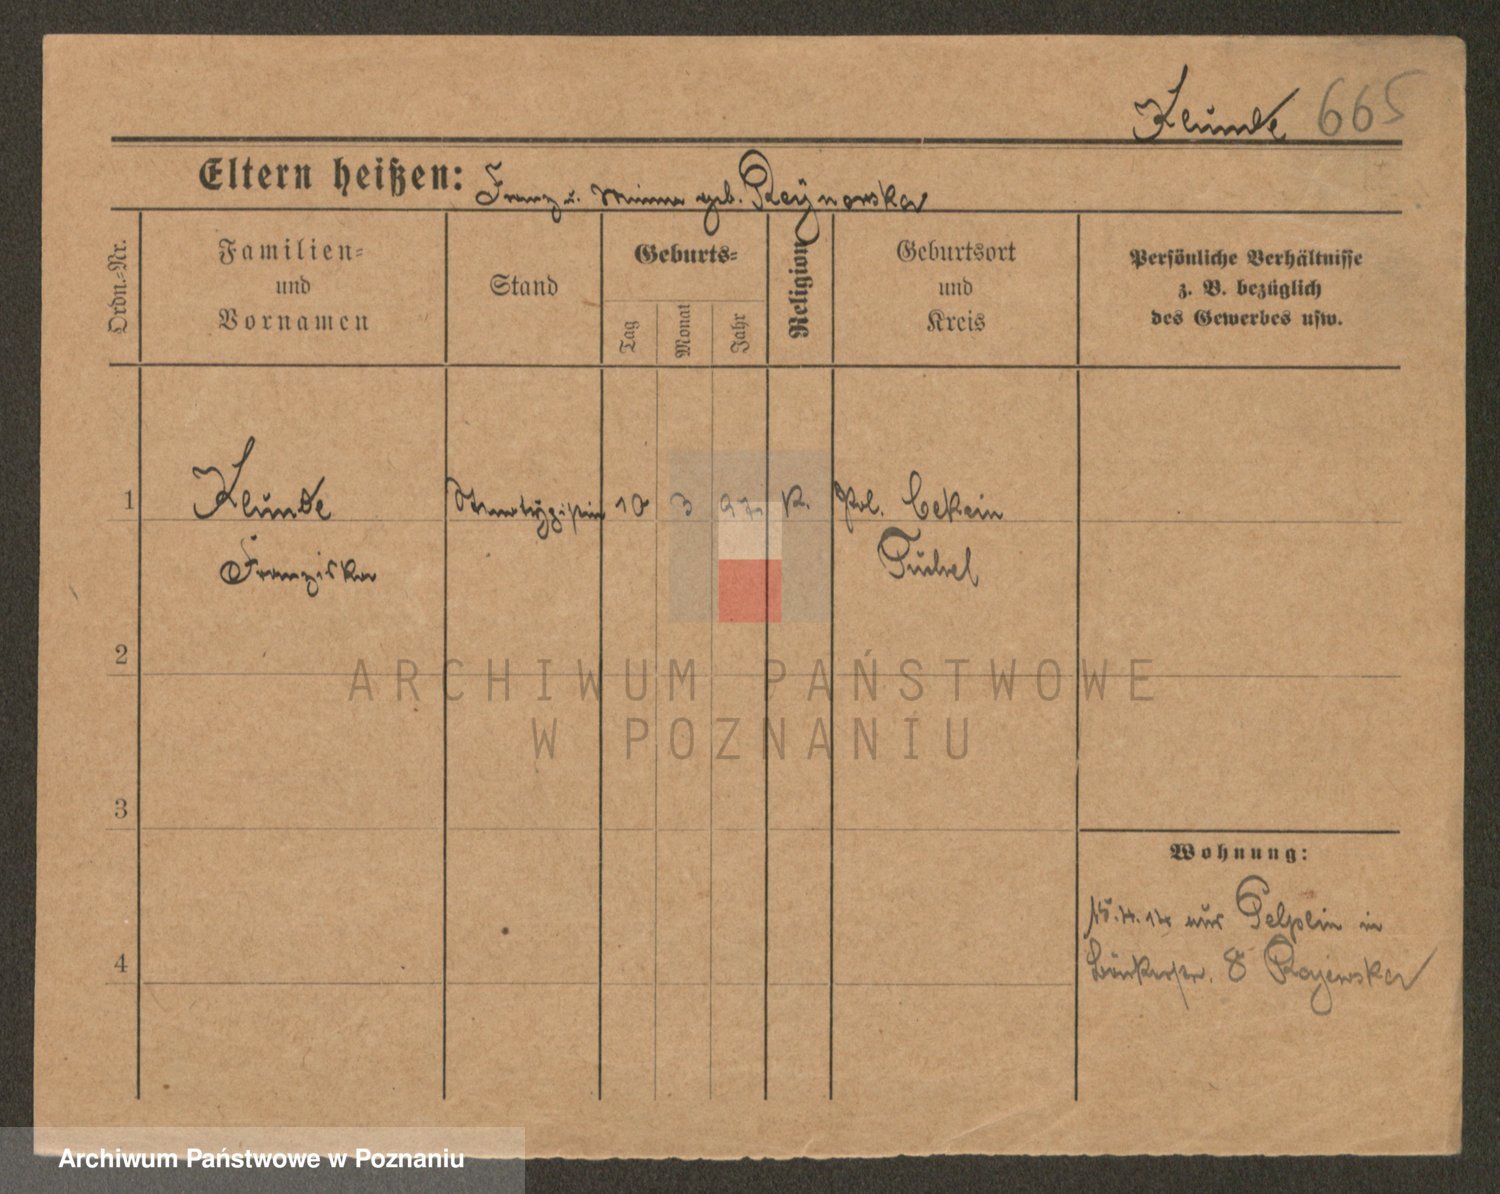 Klunde 665
Eltern heißen: Franz u. Minna geb. Reiynowska
Ordn.-Nr.
Familien-
und
Vornamen
Stand
Geburts-
Tag
Monat
Jahr
Religion
Geburtsort
und
Kreis
Persönliche Verhältnisse
z. B. bezüglich
des Gewerbes usw.
1 Klunde Stenotypistin 10 3 97 K. Pol. Cekzin
Franziska Tuchel
2
ARCHIWUM PAŃSTWOWE
W POZNANIU
3
Wohnung:
15.4.14 aus Pelplin in
Bäckerstr. 8 Rajewska
4
Archiwum Państwowe w Poznaniu